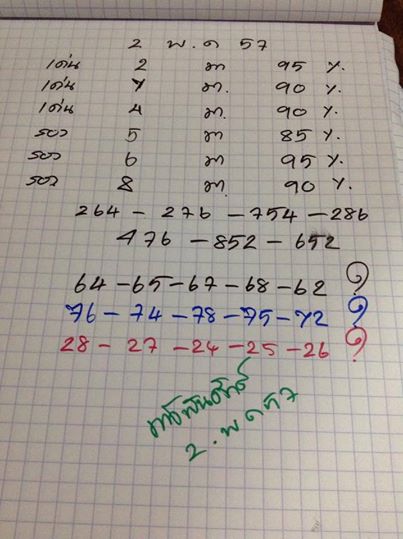 2 พ.ค 57
เด่น 2 มา 95 %.
เด่น 7 มา. 90 %.
เด่น 4 มา. 90 %.
รอง 5 มา 85 %.
รอง 6 มา 95 %.
รอง 8 มา. 90 %.
264 - 276 - 754 - 286
476 - 852 - 652
64 - 65 - 67 - 68 - 62 ?
76 - 74 - 78 - 75 - 72 ?
28 - 27 - 24 - 25 - 26 ?
2. พ ค 57